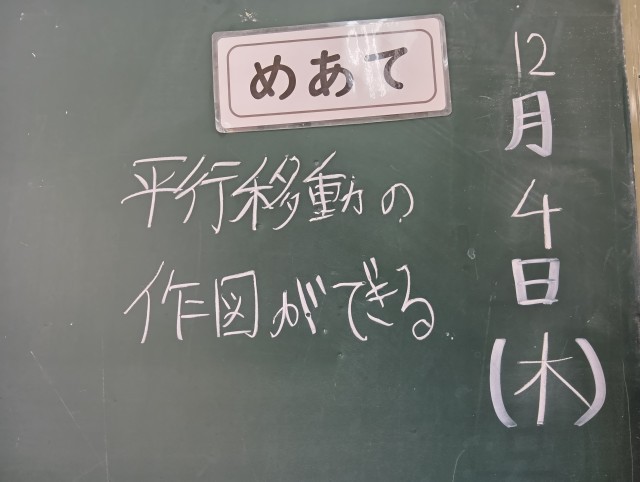 めあて
平行移動の
作図ができる.
12月4日(木)